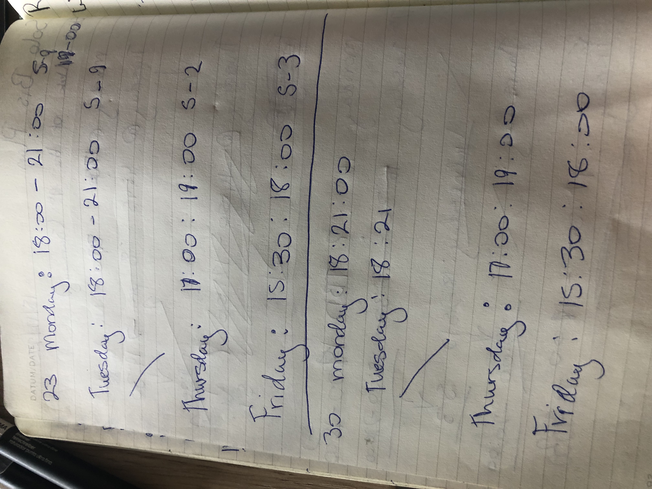 23 Monday: 18:00 - 21:00 S-9
Tuesday: 18:00 - 21:00 S-9
Thursday: 17:00 : 19:00 S-2
Friday: 15:30 : 18:00 S-3
30 monday: 18:21:00
Tuesday: 18:21
Thursday: 17:00: 19:00
Friday: 15:30: 18:00